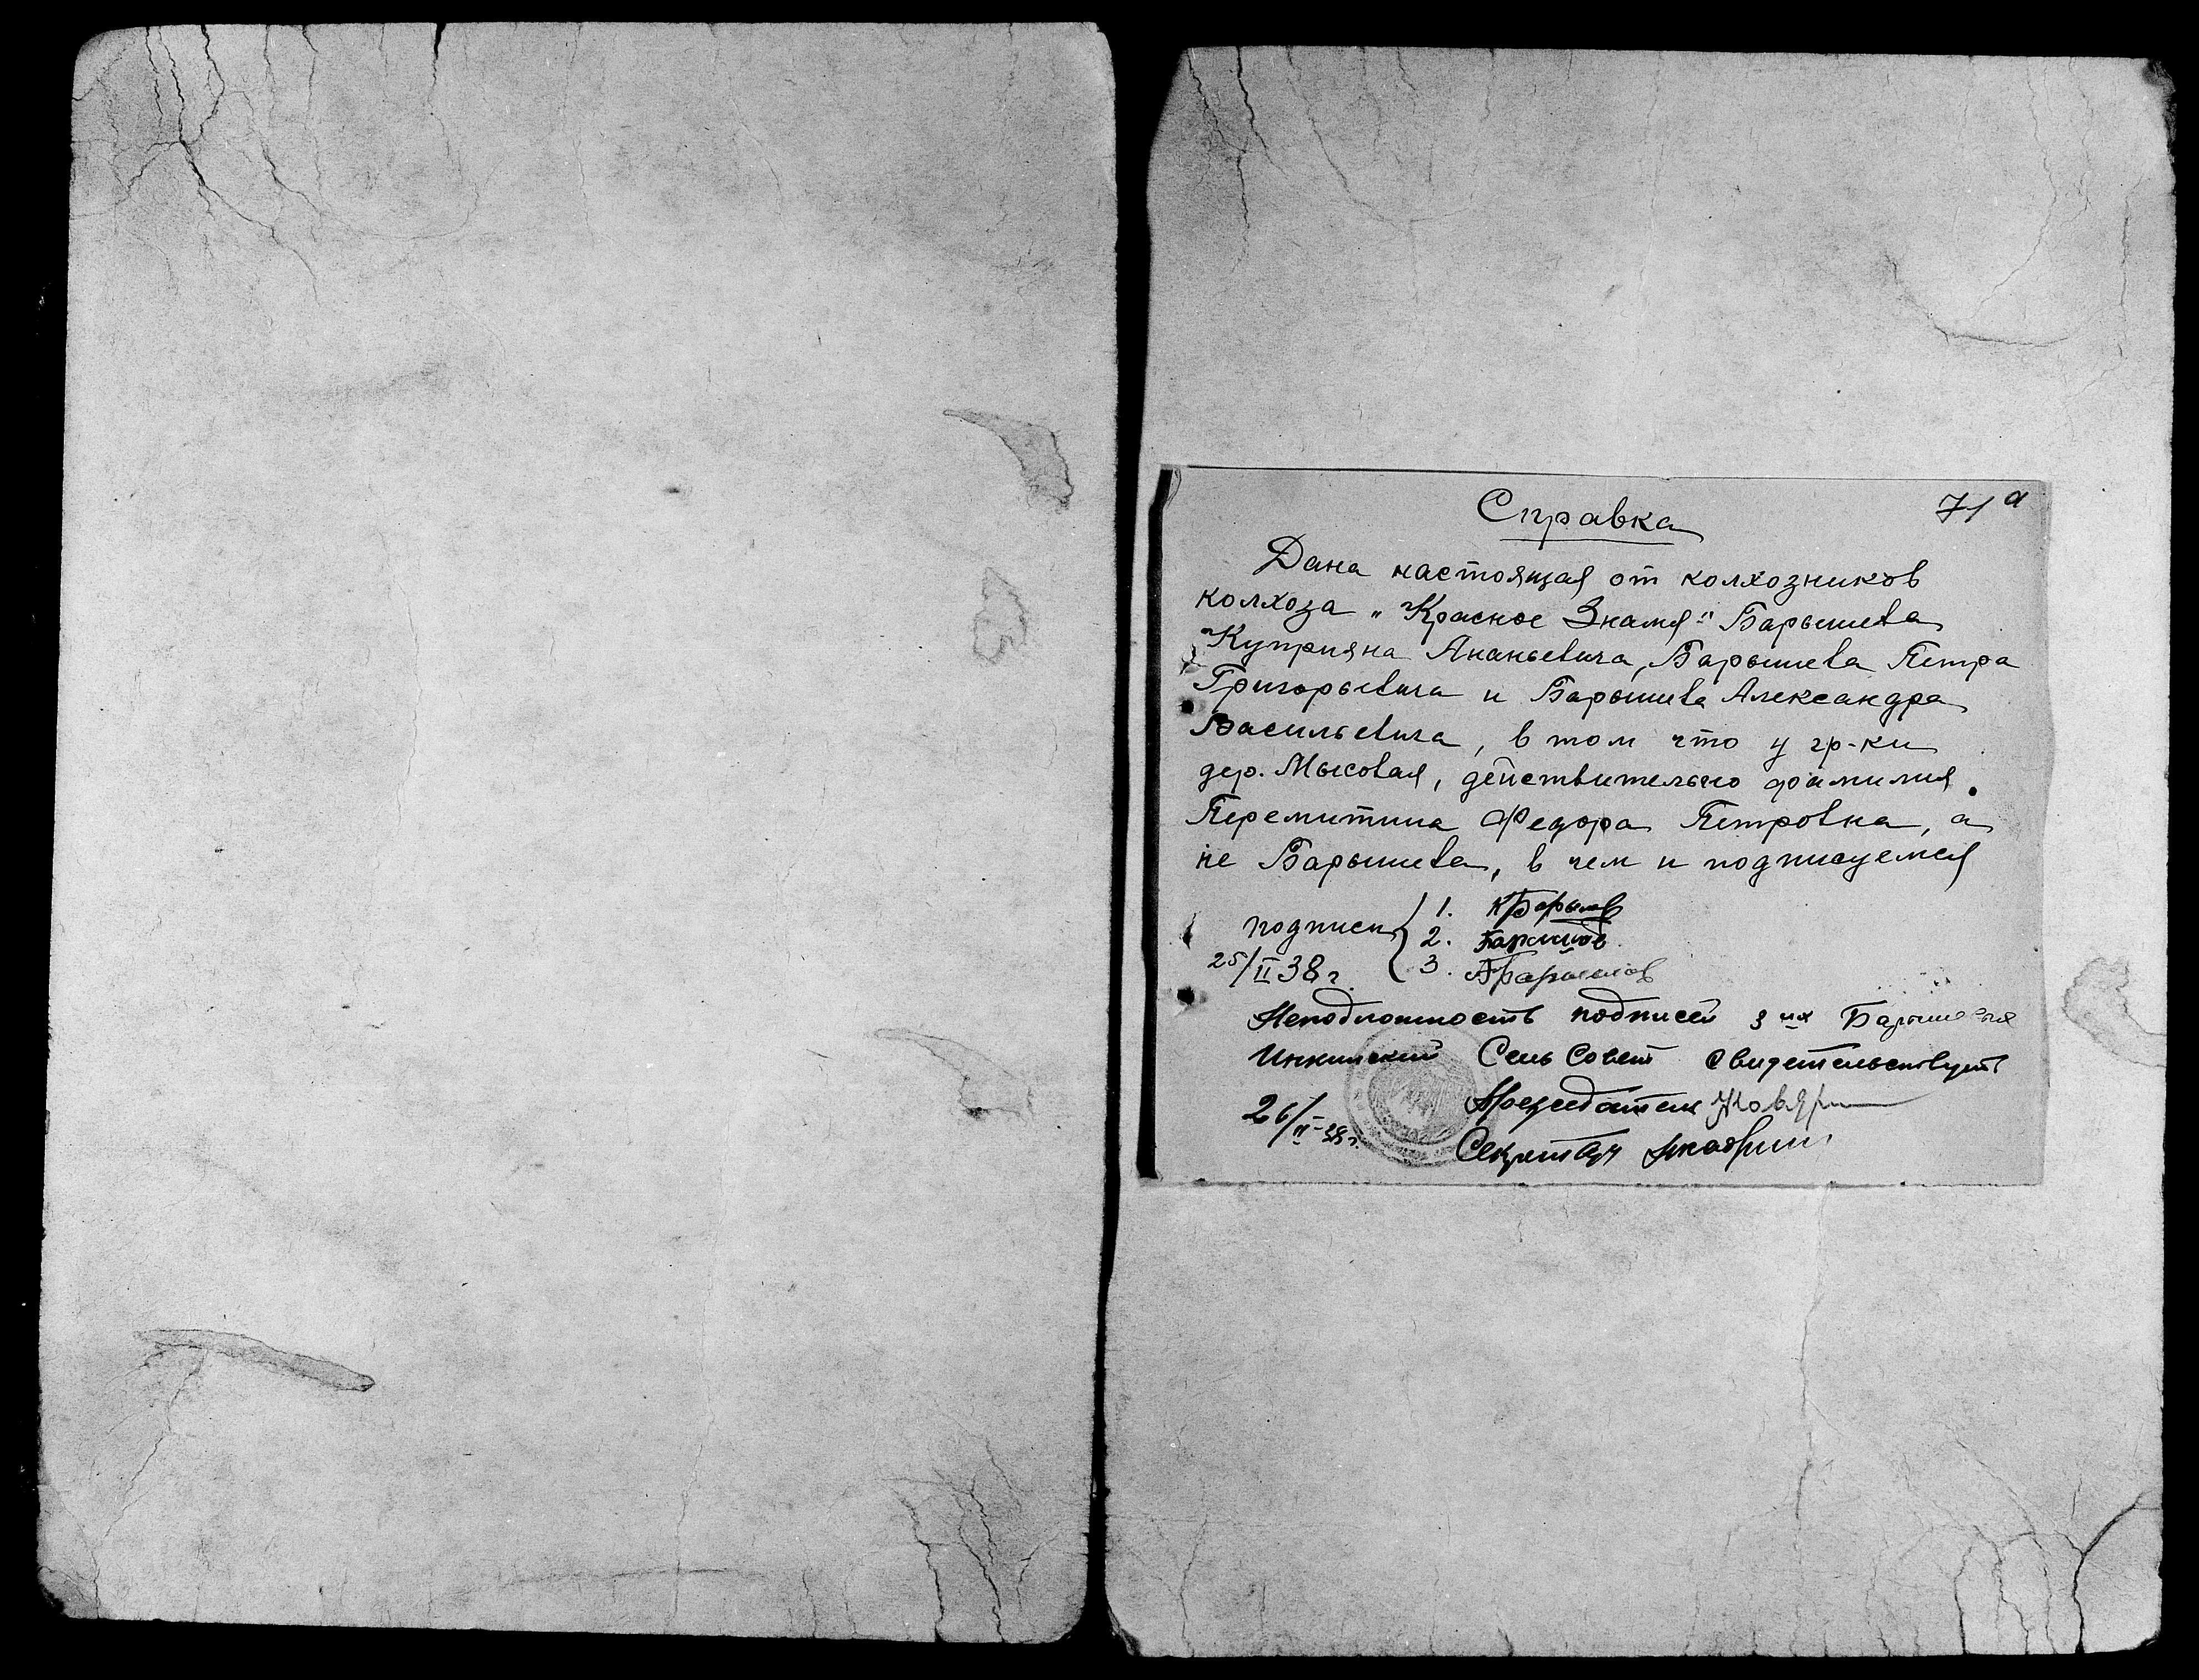 71а
Справка
Дана настоящая от колхозников
колхоза „Красное Знамя" Барышева
Куприяна Ананьевича, Барышева Петра
Григорьевича и Барышева Александра
Васильевича, в том что у гр-ки
дер. Мысовая, действительно фамилия
Перемитина Федора Петровна, а
не Барышева, в чем и подписуемся
подписи 1. КБарышев
2. Барышов
25/II 38 г. 3. АБарышов
Неподложность подписей 3 их Барышевых
Инкинский Сель Совет свидетельствует
26/II-38 г. Председатель
Секретарь